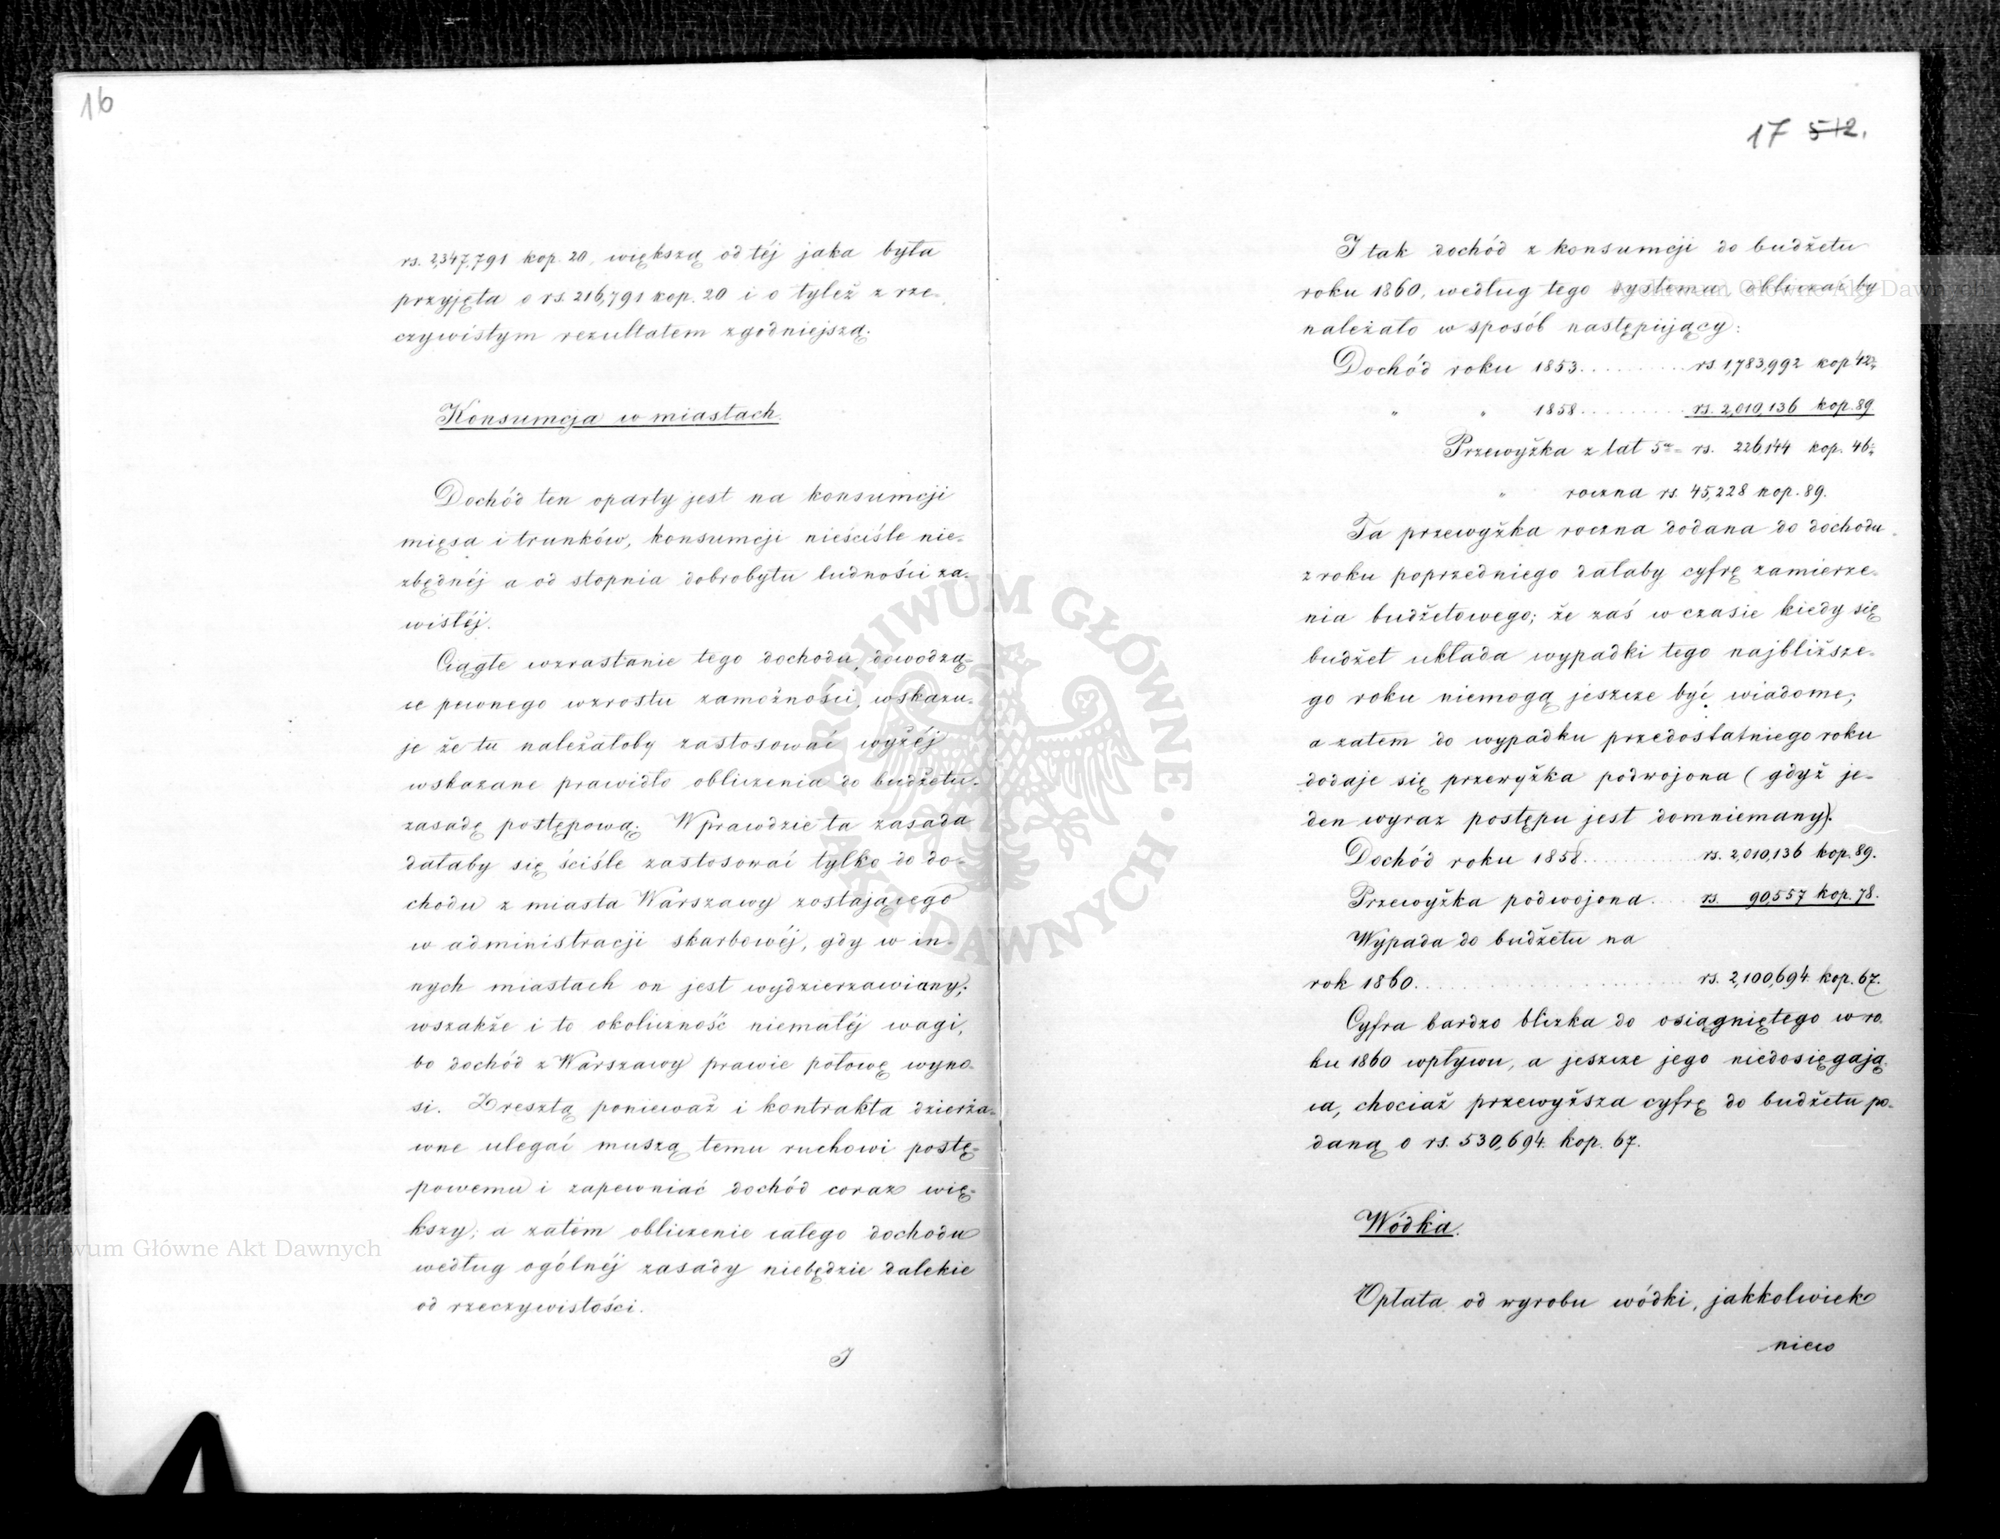 16
rs. 2,347,791 kop. 20, większą od téj jaka była
przyjęta o rs. 216,791 kop. 20 i o tyleż z rze-
czywistym rezultatem zgodniejszą.
Konsumcja w miastach.
Dochód ten oparty jest na konsumcji
mięsa i trunków, konsumcji nieściśle nie-
zbędnéj a od stopnia dobrobytu ludności za-
wisłéj.
Ciągłe wzrastanie tego dochodu, dowodzą-
ce pewnego wzrostu zamożności, wskazu-
je że tu należałoby zastosować wyżéj
wskazane prawidło obliczenia do budżetu-
zasadę postępową. Wprawdzie ta zasada
dałaby się ściśle zastosować tylko do do-
chodu z miasta Warszawy zostającego
w administracji skarbowéj, gdy w in-
nych miastach on jest wydzierżawiany;
wszakże i to okoliczność niemałéj wagi,
bo dochód z Warszawy prawie połowę wyno-
si. Zresztą ponieważ i kontrakta dzierża-
wne ulegać muszą temu ruchowi postę-
powemu i zapewniać dochód coraz wię-
kszy; a zatém obliczenie całego dochodu
według ogólnéj zasady niebędzie dalekie
od rzeczywistości.
I
17 512.
I tak dochód z konsumcji do budżetu
roku 1860, według tego systemu obliczać by
należało w sposób następujący:
Dochód roku 1853 . . . . . . . . . . rs. 1,783,992 kop 42½
" " 1858 . . . . . . . . . rs. 2,010,136 kop. 89
Przewyżka z lat 5u = rs. 226,144 kop. 46½
" roczna rs. 45,228 kop. 89.
Ta przewyżka roczna dodana do dochodu
z roku poprzedniego dałaby cyfrę zamierze-
nia budżetowego; że zaś w czasie kiedy się
budżet układa wypadki tego najbliższe-
go roku niemogą jeszcze być wiadome;
a zatém do wypadku przedostatniego roku
dodaje się przewyżka podwojona (gdyż je-
den wyraz postępu jest domniemany).
Dochód roku 1858 . . . . . . . . . rs. 2,010,136 kop. 89.
Przewyżka podwojona . . . rs. 90,557 kop. 78.
Wypada do budżetu na
rok 1860 . . . . . . . . . . . . . . . . . . . rs. 2,100,694 kop. 67.
Cyfra bardzo blizka do osiągniętego w ro-
ku 1860 wpływu, a jeszcze jego niedosięgają-
ca, chociaż przewyższa cyfrę do budżetu po-
daną o rs. 530,694 kop. 67.
Wódka.
Opłata od wyrobu wódki, jakkolwiek
niew
ARCHIWUM GŁÓWNE AKT DAWNYCH
Archiwum Główne Akt Dawnych
Archiwum Główne Akt Dawnych